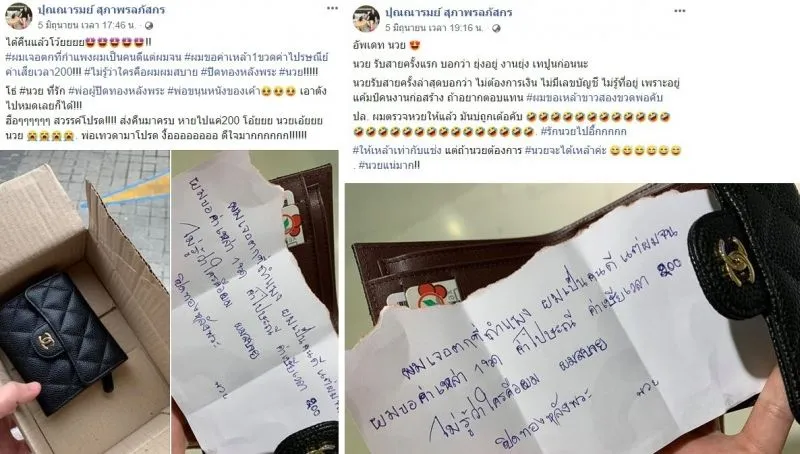 ปุณณารมย์ สุภาพรลภัสกร
5 มิถุนายน เวลา 17:46 น.
ได้คืนแล้วโว้ยยยย🤩🤩🤩🤩🤩!!
#ผมเจอตกที่กำแพงผมเป็นคนดีแต่ผมจน #ผมขอค่าเหล้า1ขวดค่าไปรษณีย์
ค่าเสียเวลา200!!! #ไม่รู้ว่าใครคือผมผมสบาย #ปิดทองหลังพระ #นวย!!!!!
โช้ #นวย ที่รัก #พ่อผู้ปิดทองหลังพระ #พ่อขุนหนังของเค้า🥺🥺🥺 เอาตัง
ไปหมดเลยก็ได้!!!
ฮือๆๆๆๆๆๆ สวรรค์โปรด!!!! ส่งคืนมาครบ หายไปแค่200 โอ้ยยย นวยเอ้ยยย
นวย 😭😭😭😭. พ่อเทวดามาโปรด งื้ออออออออ ดีใจมากกกกกก!!!!!!
ผมเจอตกที่กำแพง ผมเป็นคนดี แต่ผมจน
ผมขอค่าเหล้า 1 ขวด ค่าไปรษณี ค่าเสียเวลา 200
ไม่รู้ว่าใครคือผม ผมสบาย
ปิดทองหลังพระ
นวย
ปุณณารมย์ สุภาพรลภัสกร
5 มิถุนายน เวลา 19:16 น.
อัพเดท นวย 🤩
นวย รับสายครั้งแรก บอกว่า ยุ่งอยู่ งานยุ่ง เทปูนก่อนนะ
นวยรับสายครั้งล่าสุดบอกว่า ไม่ต้องการเงิน ไม่มีเลขบัญชี ไม่รู้ที่อยู่ เพราะอยู่
แค้มป์คนงานก่อสร้าง ถ้าอยากตอบแทน #ผมขอเหล้าขาวสองขวดพอคับ
ปล. ผมตรวจหวยให้แล้ว มันบ่ถูกเด้อคับ 🤣🤣🤣🤣🤣🤣🤣🤣🤣🤣🤣
🤣🤣🤣🤣🤣🤣🤣🤣🤣🤣🤣🤣🤣. #รักนวยไปอี๊กกกกก
#ให้เหล้าเท่ากับแช่ง แต่ถ้านวยต้องการ #นวยจะได้เหล้าค่ะ 😄😄😄😄😄😄.
#นวยแน่มาก!!
ผมเจอตกที่กำแพง ผมเป็นคนดี แต่ผมจน
ผมขอค่าเหล้า 1 ขวด ค่าไปรษณี ค่าเสียเวลา 200
ไม่รู้ว่าใครคือผม ผมสบาย
ปิดทองหลังพระ
นวย